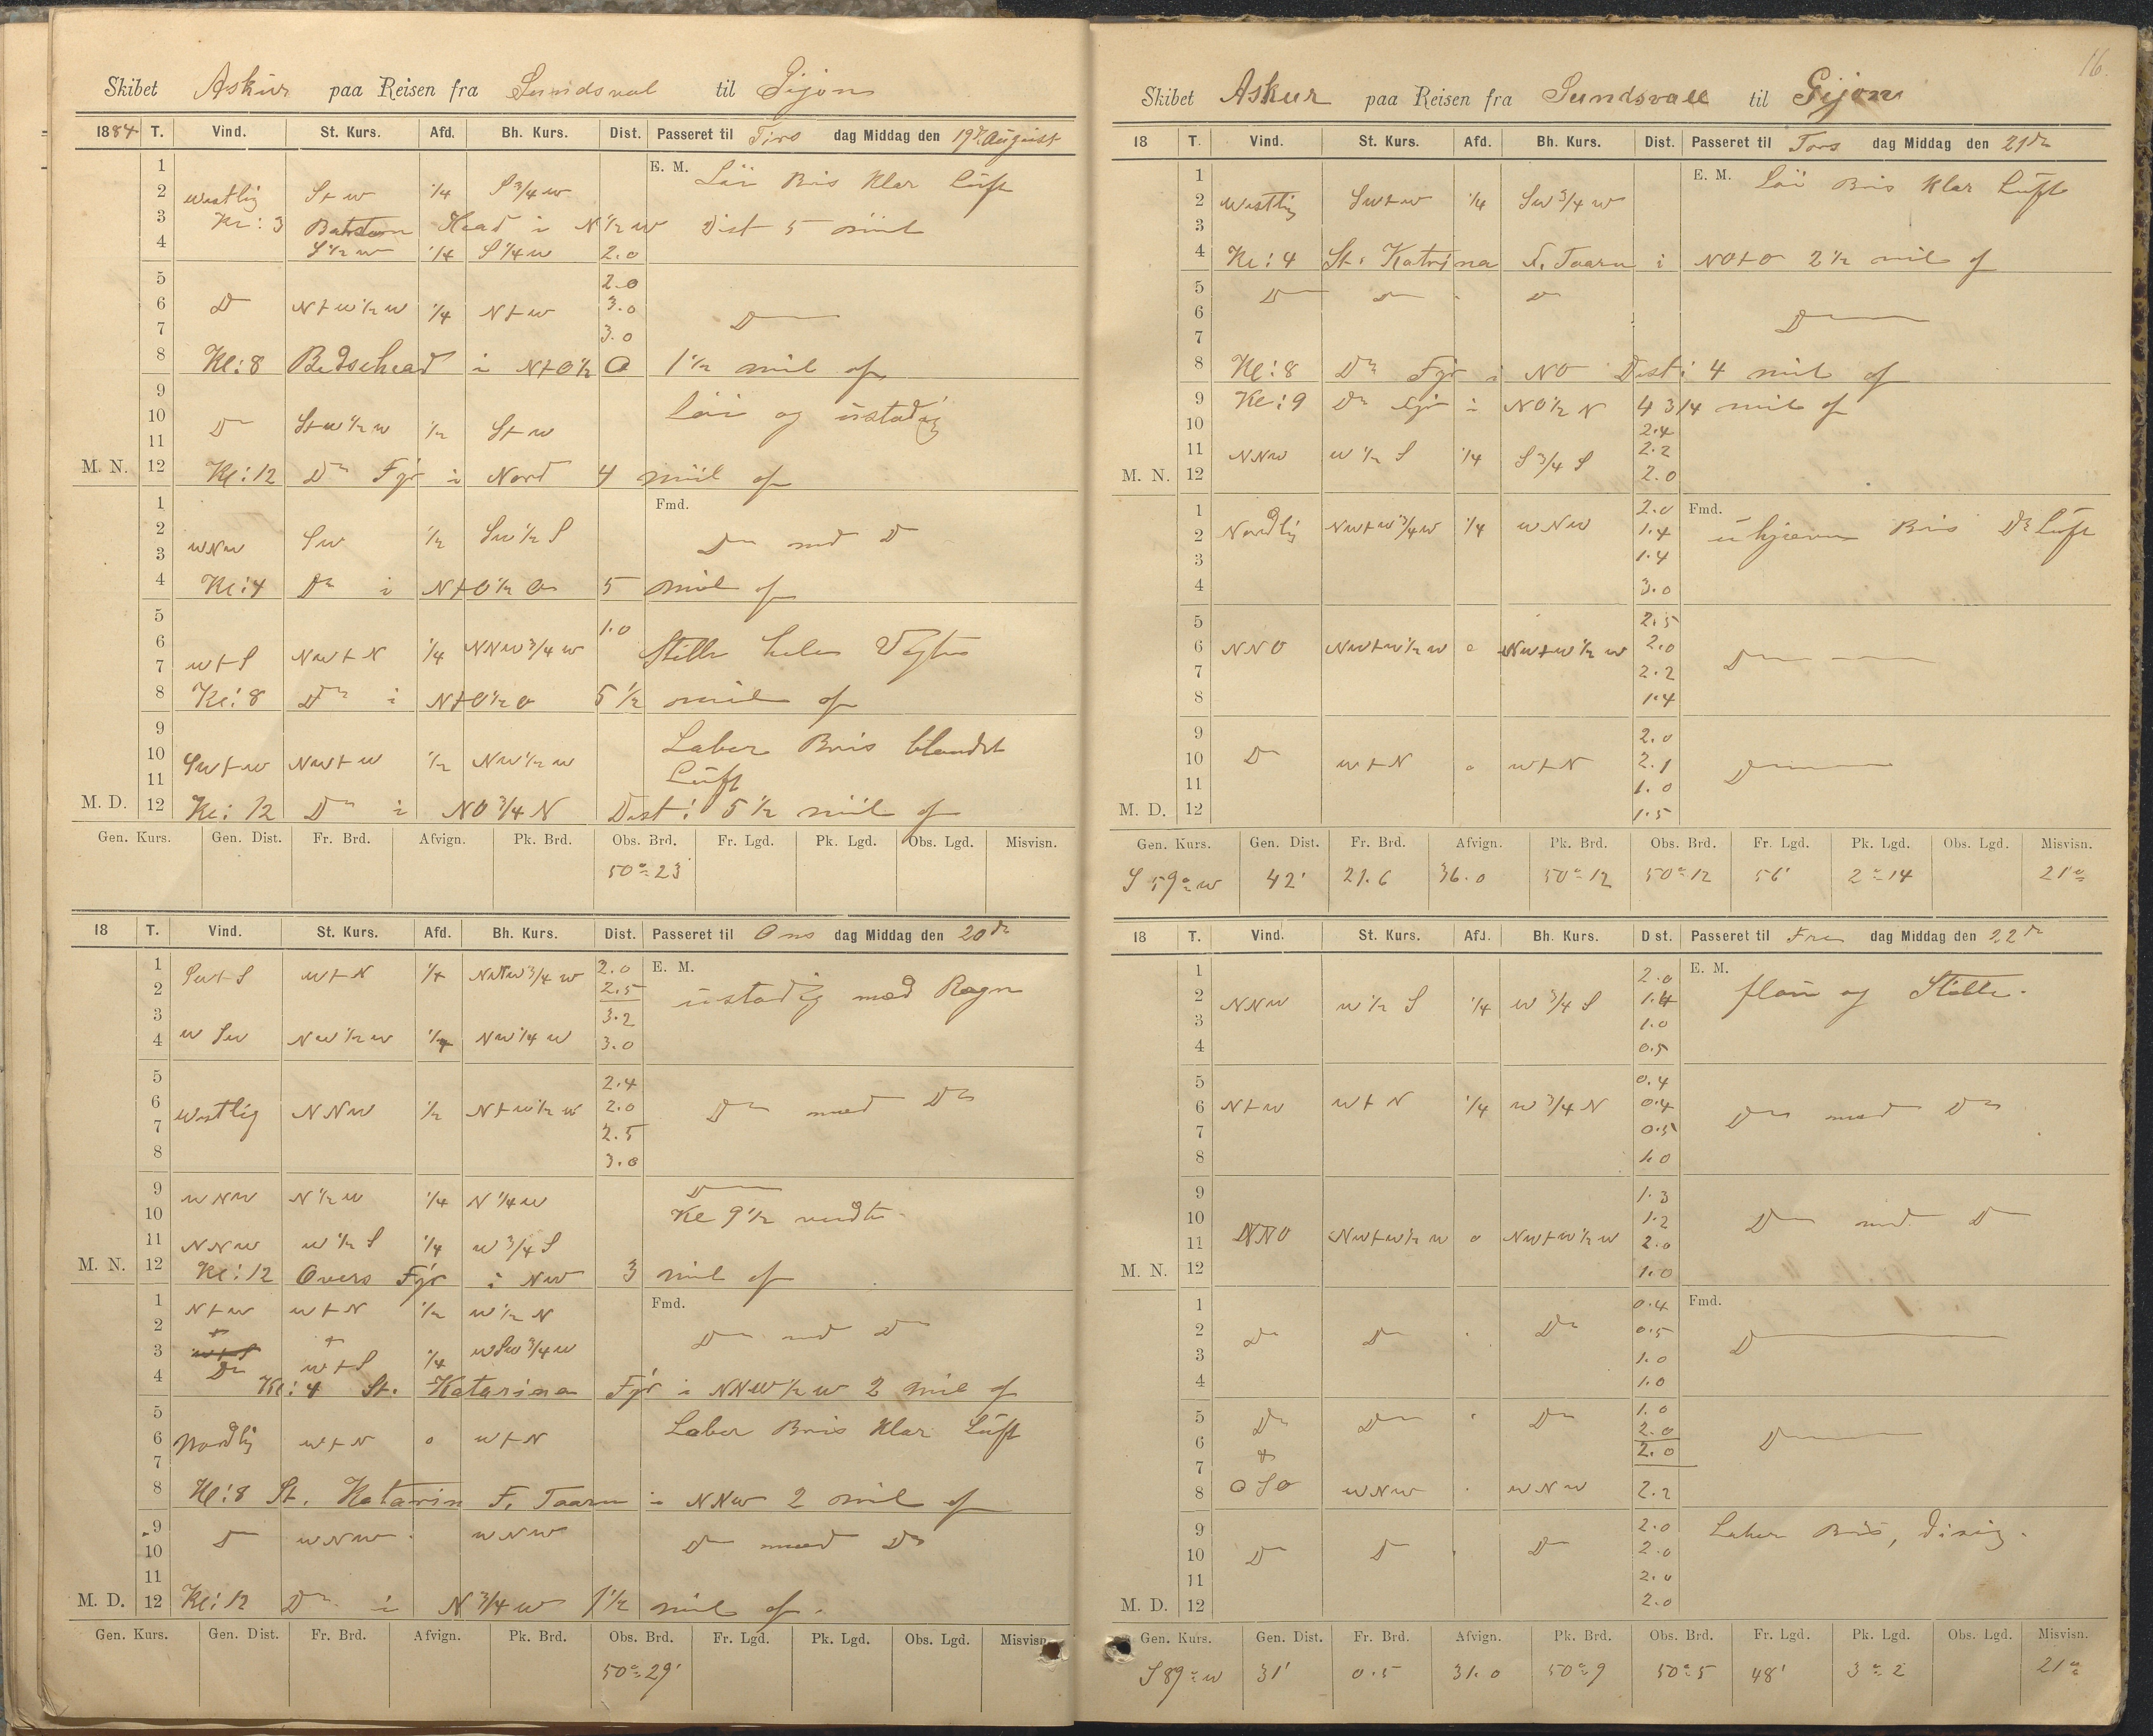 Skibet Askur paa Reisen fra Sundsval til Gijon
1884 T. Vind. St. Kurs. Afd. Bh. Kurs. Dist. Passeret til Tirs dag Middag den 19de August
1 E. M. Löi Bris Klar Luft
2 Westlig St w 1/4 S 3/4 w
3 Kl: 3 Head i N 1/2 w Dist 5 miil
4 S 1/2 w 1/4 S 1/4 w 2.0
5 2.0
6 D N t w 1/2 w 1/4 N t w 3.0 D
7 3.0
8 Kl: 8 i N t O 1/2 O 1 1/2 mil of
9 Löi og ustadig
10 D St w 1/2 w 1/2 St w
11
M. N. 12 Kl: 12 Do Fyr i Nord 4 miil of
1 Fmd.
2 WNW Sw 1/2 Sw 1/2 S Do med D
3
4 Kl: 4 Do i N t O 1/2 O 5 mil of
5 1.0
6 w t S Nw t N 1/4 NNW 3/4 w Stille hele Vagten
7
8 Kl: 8 Do i N t O 1/2 O 5 1/2 mil of
9 Laber Bris blandet
10 Sw t w Nw t w 1/2 Nw 1/2 w Luft
11
M. D. 12 Kl: 12 Do i NO 3/4 N Dist: 5 1/2 miil of
Gen. Kurs. Gen. Dist. Fr. Brd. Afvign. Pk. Brd. Obs. Brd. Fr. Lgd. Pk. Lgd. Obs. Lgd. Misvisn.
50° 23'
18 T. Vind. St. Kurs. Afd. Bh. Kurs. Dist. Passeret til Ons dag Middag den 20de
1 Sw t S w t N 1/4 3/4 w 2.0 E. M.
2 2.5 ustadig med Regn
3 3.2
4 w Sw Nw 1/2 w 1/4 Nw 1/4 w 3.0
5 2.4
6 Westlig NNW 1/2 N t w 1/2 w 2.0 Do med Do
7 2.5
8 3.0
9 WNW N 1/2 w 1/4 N 1/4 w D
10 Kl 9 1/2 vendte
11 NNW w 1/2 S 1/4 w 3/4 S
M. N. 12 Kl: 12 Overs Fyr i NW 3 mil of
1 N t w w t N 1/2 w 1/2 N Fmd.
2 Do med Do
3 Do w t S 1/4 wSw 3/4 w
4 Kl: 4 St. Katarina Fyr i NNW 1/2 w 2 mil of
5 Laber Bris Klar Luft
6 Nordlig w t N 0 w t N
7
8 Kl: 8 St. Katarin F. Taarn i NNW 2 mil of
9
10 D WNW WNW Do med Do
11
M. D. 12 Kl: 12 Do i N 3/4 w 1 1/2 mil of.
Gen. Kurs. Gen. Dist. Fr. Brd. Afvign. Pk. Brd. Obs. Brd. Fr. Lgd. Pk. Lgd. Obs. Lgd. Misvisn.
50° 29'
16.
Skibet Askur paa Reisen fra Sundsvall til Gijon
18 T. Vind. St. Kurs. Afd. Bh. Kurs. Dist. Passeret til Tors dag Middag den 21de
1 E. M. Löi Bris Klar Luft
2 Westlig Sw t w 1/4 Sw 3/4 w
3
4 Kl: 4 St. Katrina F. Taarn i NO t O 2 1/2 mil of
5 D D " D
6 D
7
8 Kl: 8 Do Fyr i NO Dist: 4 mil of
9 Kl: 9 Do Fyr i NO 1/2 N 4 3/4 mil of
10 2.4
11 NNW w 1/2 S 1/4 S 3/4 S 2.2
M. N. 12 2.0
1 2.0 Fmd.
2 Nordlig Nw t w 3/4 w 1/4 WNW 1.4 ujævn Bris Do Luft
3 1.4
4 3.0
5 2.5
6 NNO Nw t w 1/2 w 0 Nw t w 1/2 w 2.0 D
7 2.2
8 1.4
9 2.0
10 D w t N 0 w t N 2.1 D
11 1.0
M. D. 12 1.5
Gen. Kurs. Gen. Dist. Fr. Brd. Afvign. Pk. Brd. Obs. Brd. Fr. Lgd. Pk. Lgd. Obs. Lgd. Misvisn.
S 59° w 42' 21.6 36.0 50° 12 50° 12 56' 2° 14 21°
18 T. Vind. St. Kurs. Afd. Bh. Kurs. D st. Passeret til Fre dag Middag den 22de
1 2.0 E. M.
2 NNW w 1/2 S 1/4 w 3/4 S 1.4 flau og Stille.
3 1.0
4 0.5
5 0.4
6 N t w w t N 1/4 w 3/4 N 0.4 Do med Do
7 0.5
8 1.0
9 1.3
10 1.2 Do med D
11 NNO Nw t w 1/2 w 0 Nw t w 1/2 w 2.0
M. N. 12 1.0
1 0.4 Fmd.
2 Do Do " Do 0.5 D
3 1.0
4 1.0
5 Do Do " Do 1.0
6 2.0 D
7 2.0
8 OSO WNW " WNW 2.2
9 2.0 Laber Bris, disig.
10 D D " D 2.0
11 2.0
M. D. 12 2.0
Gen. Kurs. Gen. Dist. Fr. Brd. Afvign. Pk. Brd. Obs. Brd. Fr. Lgd. Pk. Lgd. Obs. Lgd. Misvisn.
S 89° w 31' 0.5 31.0 50° 9 50° 5 48' 3° 2 21°